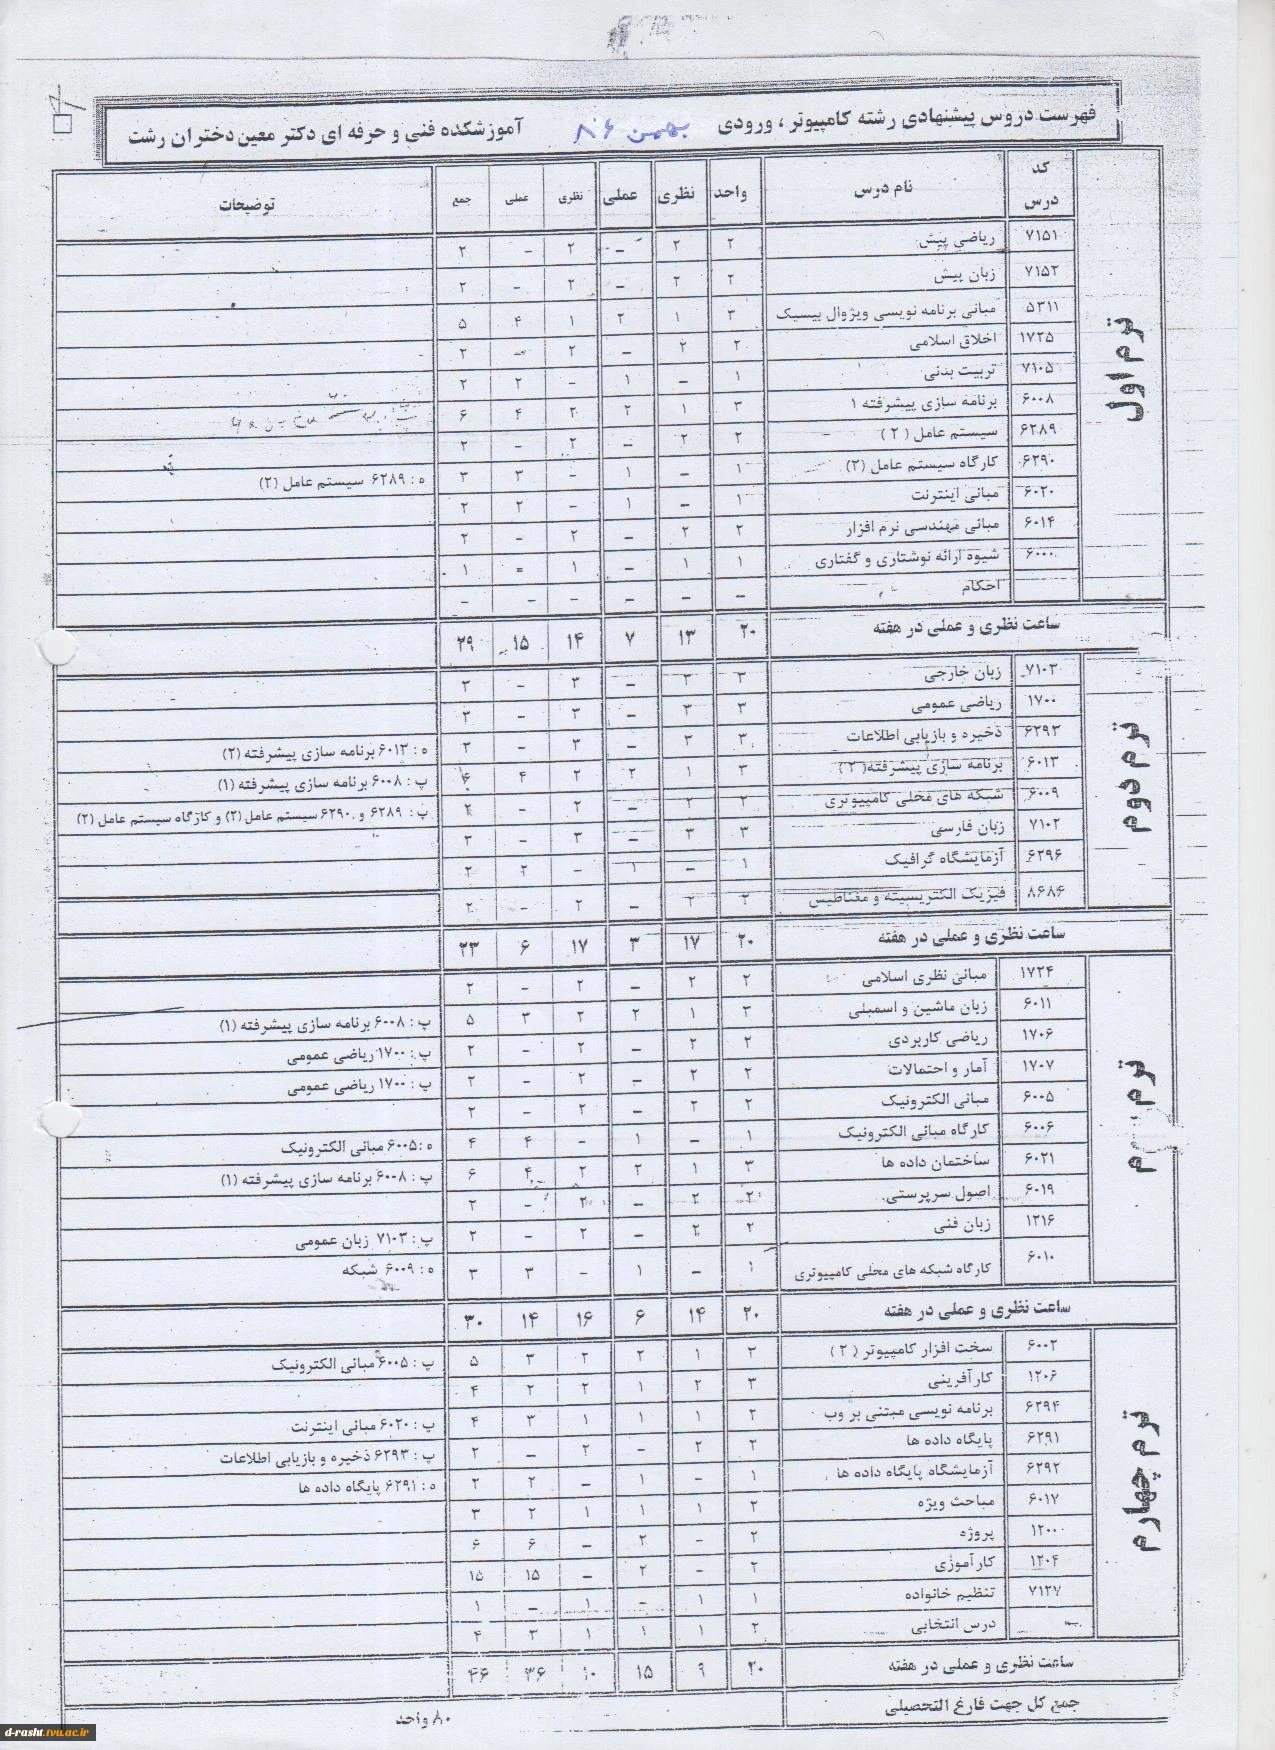 فهرست دروس پیشنهادی رشته کامپیوتر ، ورودی بهمن ۸۶ آموزشکده فنی و حرفه ای دکتر معین دختران رشت
کد درس نام درس واحد نظری عملی نظری عملی جمع توضیحات
ترم اول
۷۱۵۱ ریاضی پیش ۲ ۲ – ۲ – ۲
۷۱۵۲ زبان پیش ۲ ۲ – ۲ – ۲
۵۳۱۱ مبانی برنامه نویسی ویژوال بیسیک ۳ ۱ ۲ ۱ ۴ ۵
۱۷۲۵ اخلاق اسلامی ۲ ۲ – ۲ – ۲
۷۱۰۵ تربیت بدنی ۱ – ۱ – ۲ ۲
۶۰۰۸ برنامه سازی پیشرفته ۱ ۳ ۱ ۲ ۲ ۴ ۶
۶۲۸۹ سیستم عامل ( ۲ ) ۲ ۲ – ۲ – ۲
۶۲۹۰ کارگاه سیستم عامل (۲) ۱ – ۱ – ۳ ۳ ه : ۶۲۸۹ سیستم عامل (۲)
۶۰۲۰ مبانی اینترنت ۱ – ۱ – ۲ ۲
۶۰۱۴ مبانی مهندسی نرم افزار ۲ ۲ – ۲ – ۲
۶۰۰۰ شیوه ارائه نوشتاری و گفتاری ۱ ۱ – ۱ – ۱
احکام – – – – – –
ساعت نظری و عملی در هفته ۲۰ ۱۳ ۷ ۱۴ ۱۵ ۲۹
ترم دوم
۷۱۰۳ زبان خارجی ۳ ۳ – ۳ – ۳
۱۷۰۰ ریاضی عمومی ۳ ۳ – ۳ – ۳
۶۲۹۳ ذخیره و بازیابی اطلاعات ۳ ۳ – ۳ – ۳ ه : ۶۰۱۳ برنامه سازی پیشرفته (۲)
۶۰۱۳ برنامه سازی پیشرفته( ۲ ) ۳ ۱ ۲ ۲ ۴ ۶ پ : ۶۰۰۸ برنامه سازی پیشرفته (۱)
۶۰۰۹ شبکه های محلی کامپیوتری ۲ ۲ – ۲ – ۲ پ : ۶۲۸۹ و ۶۲۹۰ سیستم عامل (۲) و کارگاه سیستم عامل (۲)
۷۱۰۲ زبان فارسی ۳ ۳ – ۳ – ۳
۶۲۹۶ آزمایشگاه گرافیک ۱ – ۱ – ۲ ۲
۸۶۸۶ فیزیک الکتریسیته و مغناطیس ۲ ۲ – ۲ – ۲
ساعت نظری و عملی در هفته ۲۰ ۱۷ ۳ ۱۷ ۶ ۲۳
ترم م
۱۷۲۴ مبانی نظری اسلامی ۲ ۲ – ۲ – ۲
۶۰۱۱ زبان ماشین و اسمبلی ۳ ۱ ۲ ۲ ۳ ۵ پ : ۶۰۰۸ برنامه سازی پیشرفته (۱)
۱۷۰۶ ریاضی کاربردی ۲ ۲ – ۲ – ۲ پ : ۱۷۰۰ ریاضی عمومی
۱۷۰۷ آمار و احتمالات ۲ ۲ – ۲ – ۲ پ : ۱۷۰۰ ریاضی عمومی
۶۰۰۵ مبانی الکترونیک ۲ ۲ – ۲ – ۲
۶۰۰۶ کارگاه مبانی الکترونیک ۱ – ۱ – ۴ ۴ ه : ۶۰۰۵ مبانی الکترونیک
۶۰۲۱ ساختمان داده ها ۳ ۱ ۲ ۲ ۴ ۶ پ : ۶۰۰۸ برنامه سازی پیشرفته (۱)
۶۰۱۹ اصول سرپرستی ۲ ۲ – ۲ – ۲
۱۲۱۶ زبان فنی ۲ ۲ – ۲ – ۲ پ : ۷۱۰۳ زبان عمومی
۶۰۱۰ کارگاه شبکه های محلی کامپیوتری ۱ – ۱ – ۳ ۳ ه : ۶۰۰۹ شبکه
ساعت نظری و عملی در هفته ۲۰ ۱۴ ۶ ۱۶ ۱۴ ۳۰
ترم چهارم
۶۰۰۲ سخت افزار کامپیوتر ( ۲ ) ۳ ۱ ۲ ۲ ۳ ۵ پ : ۶۰۰۵ مبانی الکترونیک
۱۲۰۶ کارآفرینی ۳ ۲ ۱ ۲ ۲ ۴
۶۲۹۴ برنامه نویسی مبتنی بر وب ۲ ۱ ۱ ۱ ۳ ۴ پ : ۶۰۲۰ مبانی اینترنت
۶۲۹۱ پایگاه داده ها ۲ ۲ – ۲ – ۲ پ : ۶۲۹۳ ذخیره و بازیابی اطلاعات
۶۲۹۲ آزمایشگاه پایگاه داده ها ۱ – ۱ – ۲ ۲ ه : ۶۲۹۱ پایگاه داده ها
۶۰۱۷ مباحث ویژه ۲ ۱ ۱ ۱ ۲ ۳
۱۲۰۰ پروژه ۲ – ۲ – ۶ ۶
۱۲۰۴ کارآموزی ۲ – ۲ – ۱۵ ۱۵
۷۱۲۷ تنظیم خانواده ۱ ۱ – ۱ – ۱
– درس انتخابی ۲ ۱ ۱ ۱ ۳ ۴
ساعت نظری و عملی در هفته ۲۰ ۹ ۱۵ ۱۰ ۳۶ ۴۶
جمع کل جهت فارغ التحصیلی ۸۰ واحد
d-rasht.tvu.ac.ir